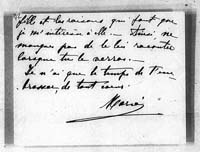 fille et les raisons qui font que
je m'intéresse à elle. — Ainsi ne
manques pas de le lui raconter
lorsque tu le verras.
Je n'ai que le temps de t'em
brasser de tout cœur.
Marie